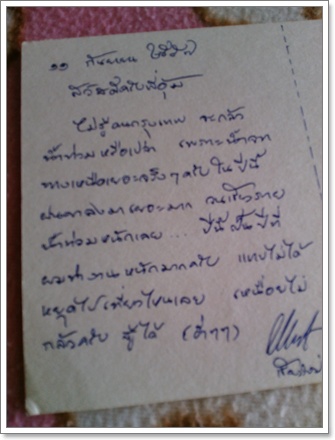 ๑๑ กันยายน
สวัสดีครับพี่อุ้ม
ไม่รู้คนกรุงเทพ จะกลัว
น้ำท่วมหรือเปล่า เพราะน้ำจาก
ทางเหนือเยอะจริงๆ ครับ ในปีนี้
ฝนตกลงมาเยอะมาก จนเชียงราย
น้ำท่วมหนักเลย... ปีนี้ เป็นปีที่
ผมทำงานหนักมากครับ แทบไม่ได้
หยุดไปเที่ยวไหนเลย เหนื่อยไม่
กลัวครับ สู้ได้ (ฮ่าๆๆ)